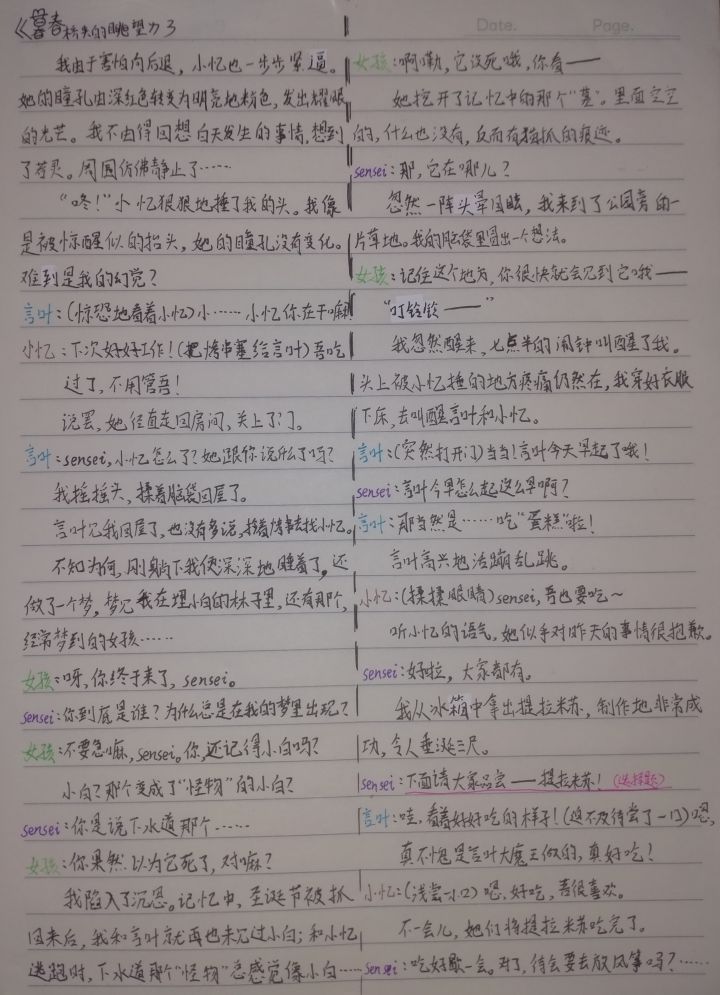 《暮春枝头的眺望》3
Date.
Page.
我由于害怕向后退，小忆也一步步紧逼。
她的瞳孔由深红色转变为明亮地粉色，发出耀眼
的光芒。我不由得回想白天发生的事情，想到
了苻灵。周围仿佛静止了……
“咚！”小忆狠狠地捶了我的头。我像
是被惊醒似的抬头，她的瞳孔没有变化。
难到是我的幻觉？
言叶：（惊恐地看着小忆）小……小忆你在干嘛！
小忆：下次好好工作！（把烤串塞给言叶）吾吃
过了，不用管吾！
说罢，她径直走回房间，关上了门。
言叶：sensei，小忆怎么了？她跟你说什么了吗？
我摇摇头，揉着脑袋回屋了。
言叶见我回屋了，也没有多说，拎着烤串去找小忆。
不知为何，刚躺下我便深深地睡着了，还
做了一个梦，梦见我在埋小白的林子里，还有那个，
经常梦到的女孩……
女孩：呀，你终于来了，sensei。
sensei：你到底是谁？为什么总是在我的梦里出现？
女孩：不要急嘛，sensei。你，还记得小白吗？
小白？那个变成了“怪物”的小白？
sensei：你是说下水道那个……
女孩：你果然以为它死了，对嘛？
我陷入了沉思。记忆中，圣诞节被抓
回来后，我和言叶就再也未见过小白；和小忆
逃跑时，下水道那个“怪物”总感觉像小白……
女孩：啊嘞，它没死哦，你看——
她挖开了记忆中的那个“墓”。里面空空
的，什么也没有，反而有狗抓的痕迹。
sensei：那，它在哪儿？
忽然一阵头晕目眩，我来到了公园旁的一
片草地。我的脑袋里冒出一个想法。
女孩：记住这个地方，你很快就会见到它哦——
“叮铃铃——”
我忽然醒来，七点半的闹钟叫醒了我。
头上被小忆捶的地方疼痛仍然在，我穿好衣服
下床，去叫醒言叶和小忆。
言叶：（突然打开门）当当！言叶今天早起了哦！
sensei：言叶今早怎么起这么早啊？
言叶：那当然是……吃“蛋糕”啦！
言叶高兴地活蹦乱跳。
小忆：（揉揉眼睛）sensei，吾也要吃～
听小忆的语气，她似乎对昨天的事情很抱歉。
sensei：好啦，大家都有。
我从冰箱中拿出提拉米苏，制作地非常成
功，令人垂涎三尺。
sensei：下面请大家品尝——提拉米苏！（选择题）
言叶：哇，看着好好吃的样子！（迫不及待尝了一口）嗯，
真不愧是言叶大魔王做的，真好吃！
小忆：（浅尝一口）嗯，好吃，吾很喜欢。
不一会儿，她们将提拉米苏吃完了。
sensei：吃好歇一会。对了，待会要去放风筝吗？……